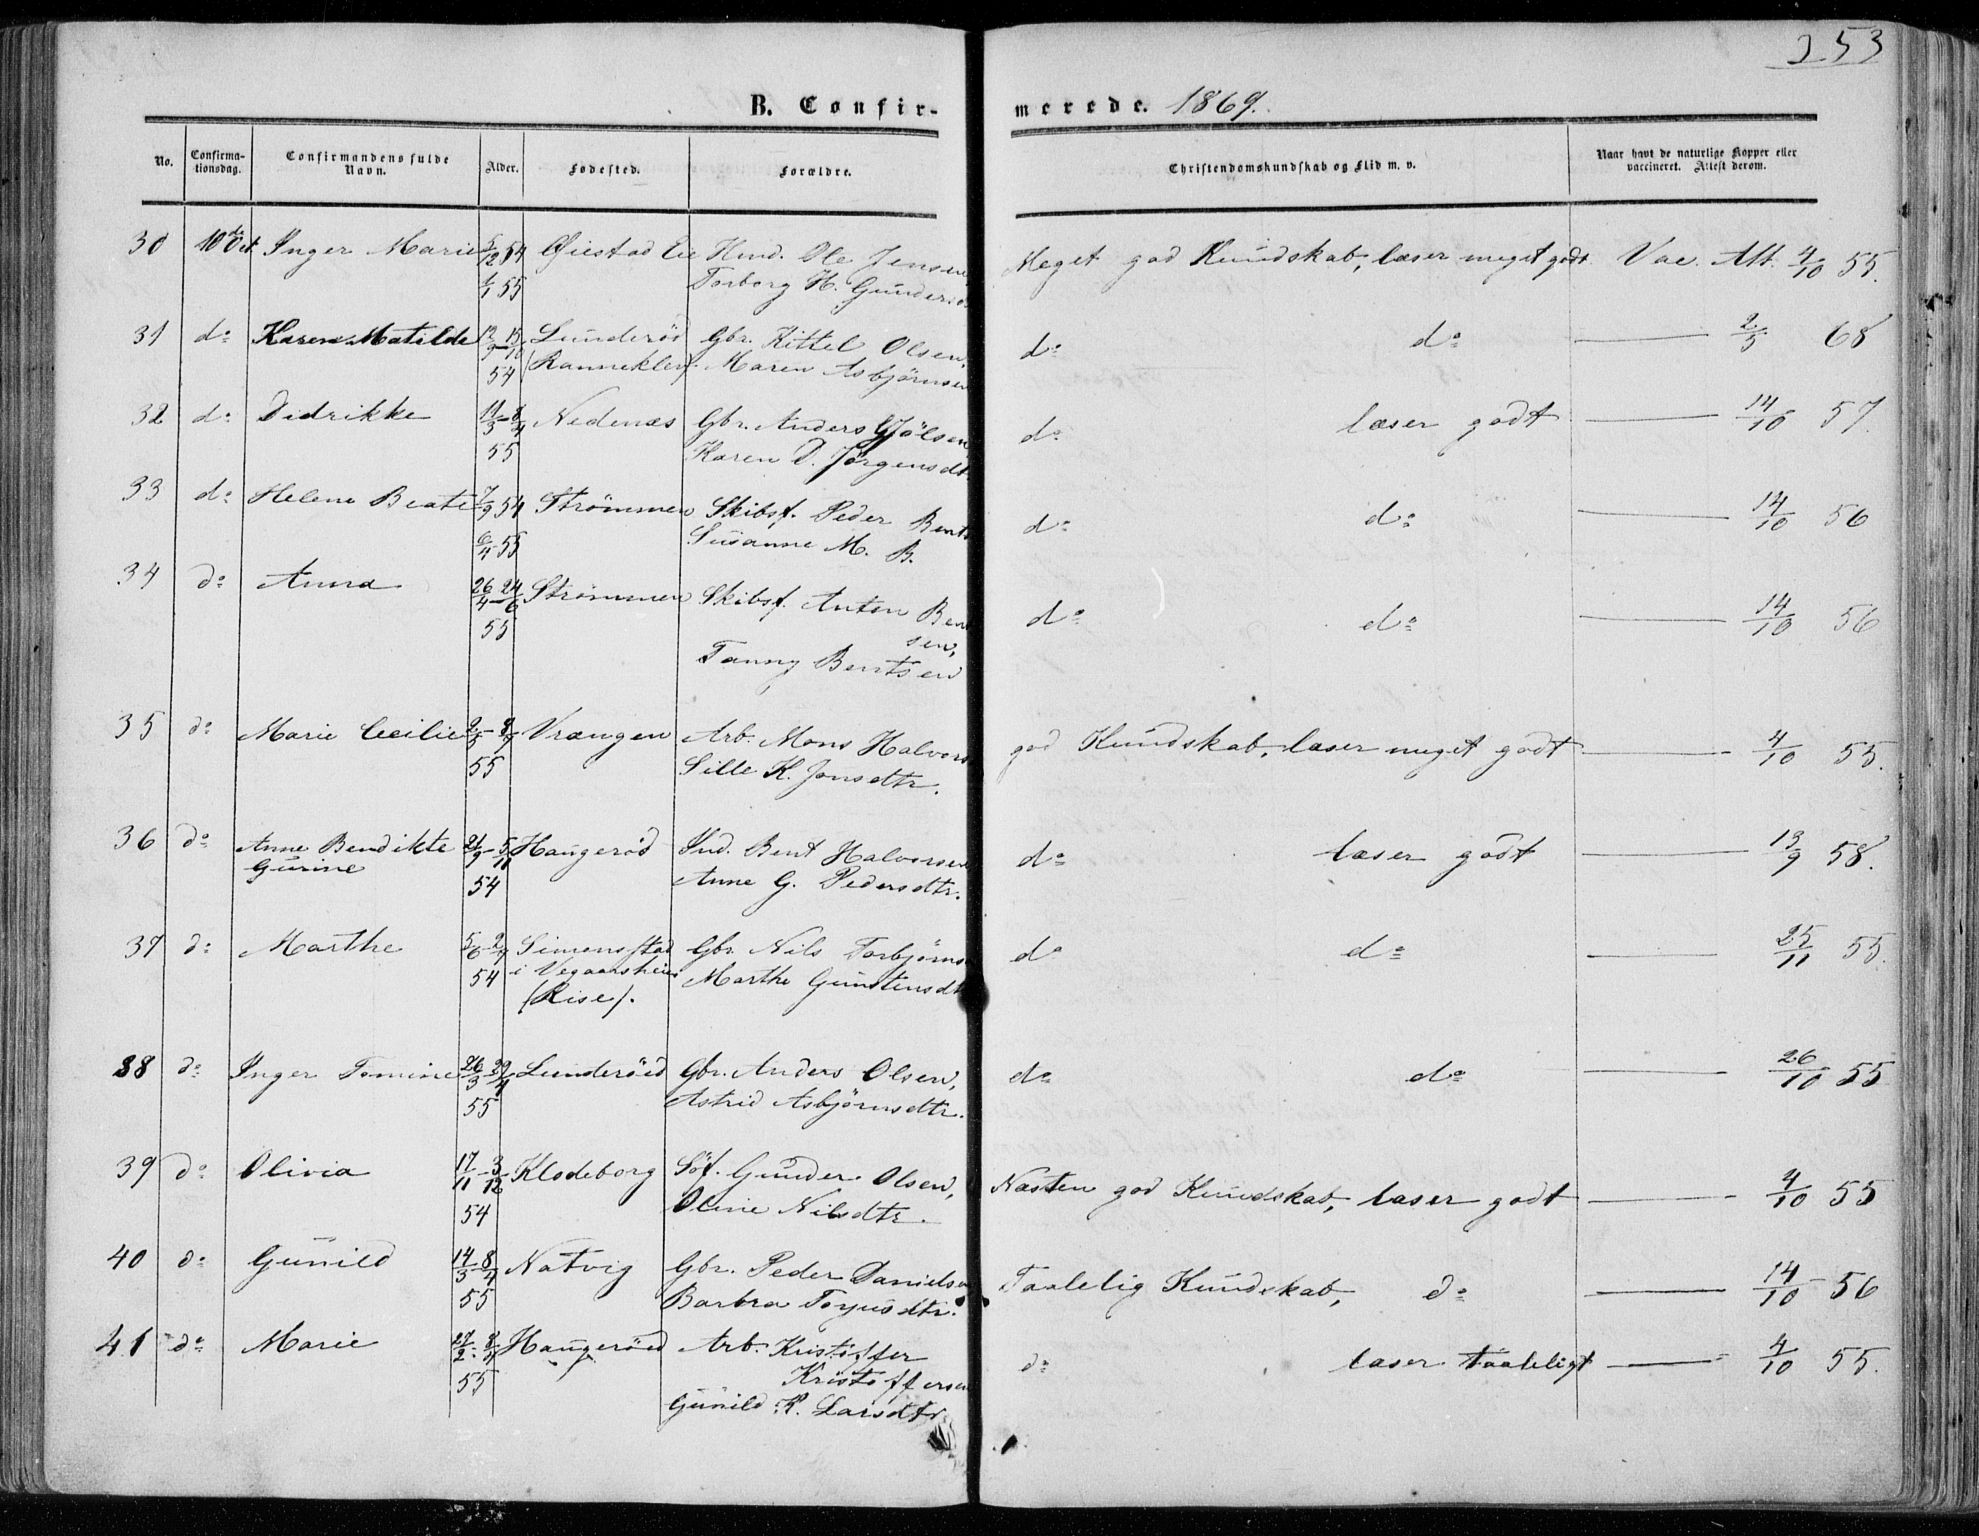 253
B. Confirmerede. 1869.
No. Confirmationsdag. Confirmandens fulde Navn. Alder. Fødested. Forældre. Christendomskundskab og Flid m. v. Naar havt de naturlige Kopper eller vaccineret. Attest derom.
30 10de Oct Inger Marie 5/12 54 Øiestad Ole Jensen, Meget god Kundskab, læser meget godt Vac. Att. 4/10 55.
1/1 55 Torborg H. Gunders
31 do Karen Matilde 12/9 - 15/10 Lunderöd Gbr. Kittel Olsen, do do — 2/5 68
54 Maren Asbjörnsen
32 do Didrikke 11/3 - 8/4 Nedenæs Gbr. Anders Gjölsen do læser godt — 14/10 57.
55 Karen D. Jörgensdt.
33 do Helene Beate 7/9 54 Strömmen Skibsf. Peder Bents do do — 14/10 56
55 Susanne M. B.
34 do Anna 26/4 - 24/6 Strömmen Skibsf. Anton Bentsen, do do — 14/10 56
55 Fanny Bentsen
35 do Marie Cecilie 2/5 - 8/7 Vrængen Arb. Mons Halvors god Kundskab, læser meget godt — 4/10 55.
55 Sille K. Jonsdtr.
36 do Anne Bendikte 21/9 - 5/11 Haugeröd Ind. Bent Halvorsen do læser godt — 13/9 58.
Gurine 54 Anne G. Pedersdtr.
37 do Marthe 5/6 - 2/7 Simonsstad Gbr. Nils Torbjörns do do — 25/11 55.
54 i Vegaarsheien Marthe Gunstensdt
(Rise).
38 do Inger Tomine 26/3 - 29/4 Lunderöed Gbr. Anders Olsen, do do — 26/10 55
55 Astrid Asbjörnsdtr.
39 do Olivia 17/11 - 3/12 Klodeborg Söf. Gunder Olsen, Næsten god Kundskab, læser godt — 4/10 55
54 Oline Nilsdtr.
40 do Gunild 14/3 - 8/4 Natvig Gbr. Peder Daniels Taalelig Kundskab, do — 14/10 56
55 Barbra Terjusdtr.
41 do Marie 27/2 - 8/4 Haugeröed Arb. Kristoffer do læser taaleligt — 4/10 55.
55 Kristoffersen
Gunild K. Larsdtr.